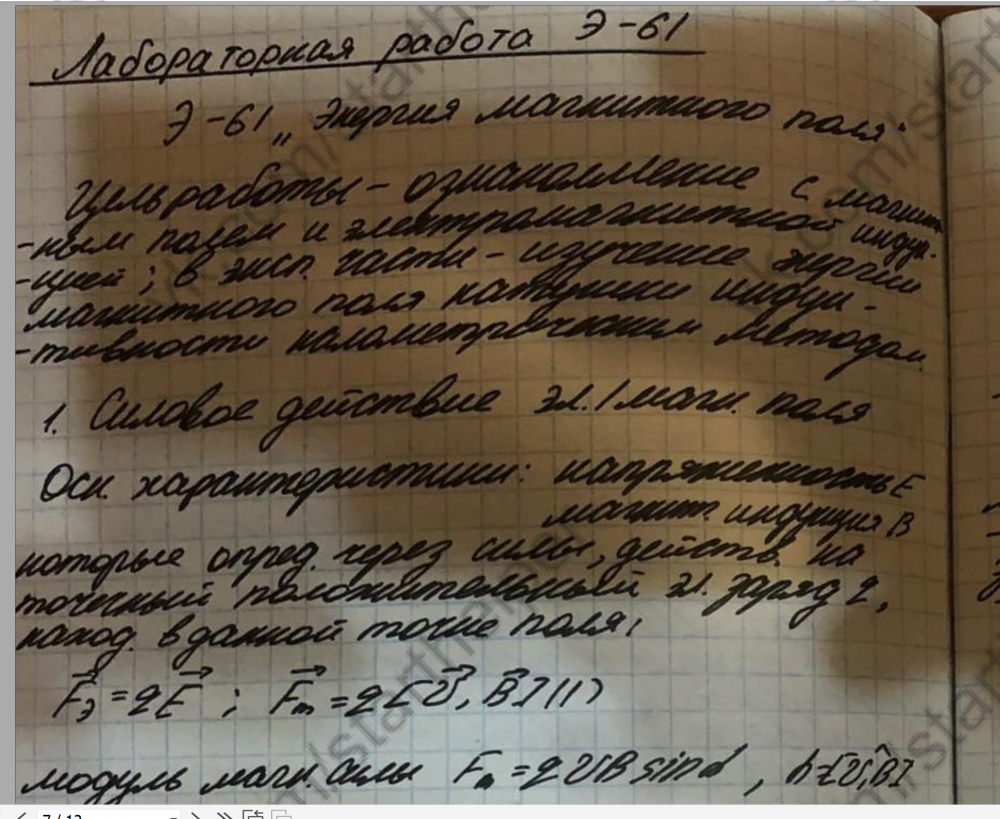 Лабораторная работа Э-61
Э-61 „Энергия магнитного поля"
Цель работы - ознакомление с магнит
-ным полем и электромагнитной индук-
-цией; в эксп. части - изучение энергии
магнитного поля катушки индук-
-тивности калометрическим методом
1. Силовое действие эл./магн. поля
Осн. характеристики: напряженность E
магнит. индукция B
которые опред. через силы, действ. на
точечный положительный эл. заряд q,
наход. в данной точке поля,
F⃗э = qE⃗ ; F⃗m = q[V⃗, B⃗] (1)
модуль магн. силы Fm = qVB sin α ,
7 / 12